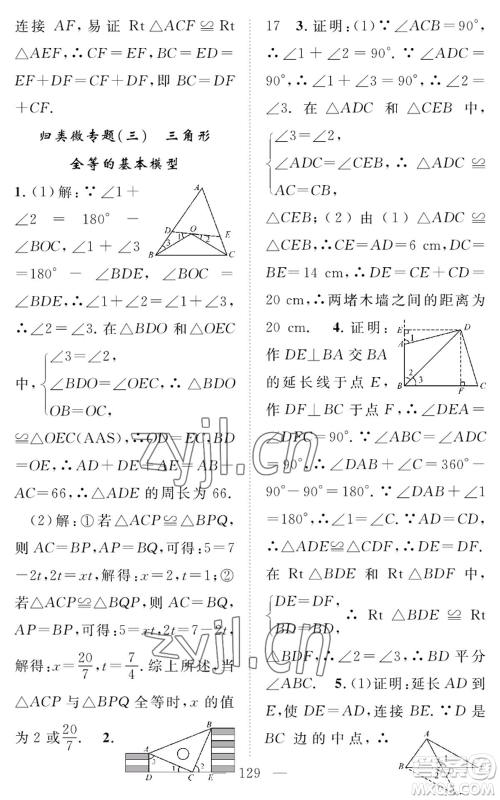 连接 AF,易证 Rt△ACF≌Rt
△AEF,∴CF=EF,BC=ED=
EF+DF=CF+EF,即 BC=DF
+CF.
归类微专题(三) 三角形
全等的基本模型
1. (1)解:∵∠1+
∠2 = 180° -
∠BOC,∠1+∠3
=180°-∠BDE,∠BOC=
∠BDE,∴∠1+∠2=∠1+∠3,
∴∠2=∠3. 在△BDO 和△OEC
中,{∠3=∠2,
∠BDO=∠OEC,∴△BDO
OB=OC,
≌△OEC(AAS),∴DO=EC,BD
=OE,∴AD+DE+AE=AB+
AC=66,∴△ADE 的周长为 66.
(2)解:①若△ACP≌△BPQ,
则 AC=BP,AP=BQ,可得:5=7
-2t,2t=xt,解得:x=2,t=1;②
若△ACP≌△BQP,则 AC=BQ,
AP=BP,可得:5=xt,2t=7-2t,
解得:x=20/7,t=7/4. 综上所述,当
△ACP 与△BPQ 全等时,x 的值
为 2 或20/7. 2.
A
B
C
D
E
O
1
2
3
A
B
D
C
E
1
2
17 3. 证明:(1)∵∠ACB=90°,
∴∠1+∠2=90°. ∵∠ADC=
90°,∴∠1+∠3=90°,∴∠2=
∠3. 在△ADC 和△CEB 中,
{∠3=∠2,
∠ADC=∠CEB,∴△ADC≌
AC=CB,
△CEB;(2)由(1)△ADC≌
△CEB,∴CE=AD=6 cm,DC=
BE=14 cm,∴DE=DC+CE=
20 cm,∴两堵木墙之间的距离为
20 cm. 4. 证明:
作 DE⊥BA 交 BA
的延长线于点 E,
作 DF⊥BC 于点 F,∴∠DEA=
∠DFC=90°. ∵∠ABC=∠ADC
=90°,∴∠DAB+∠C=360°-
90°-90°=180°. ∵∠DAB+∠1
=180°,∴∠1=∠C. ∵DA=DC,
∴△DEA≌△CDF,∴DE=DF.
在 Rt△BDE 和 Rt△BDF 中,
{DE=DF,
BD=BD, ∴Rt△BDE≌Rt
△BDF,∴∠2=∠3,∴BD 平分
∠ABC. 5. (1)证明:延长 AD 到
E,使 DE=AD,连接 BE. ∵D 是
BC 边的中点,
E
D
A
B
F
C
1
2
3
129
zyjl.cn
zyjl.cn